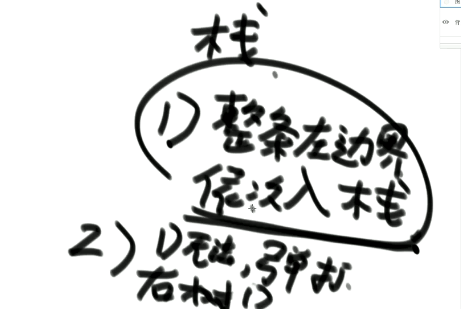 栈
1) 整条左边界
依次入栈
2) 1)无法,弹出
右树1)